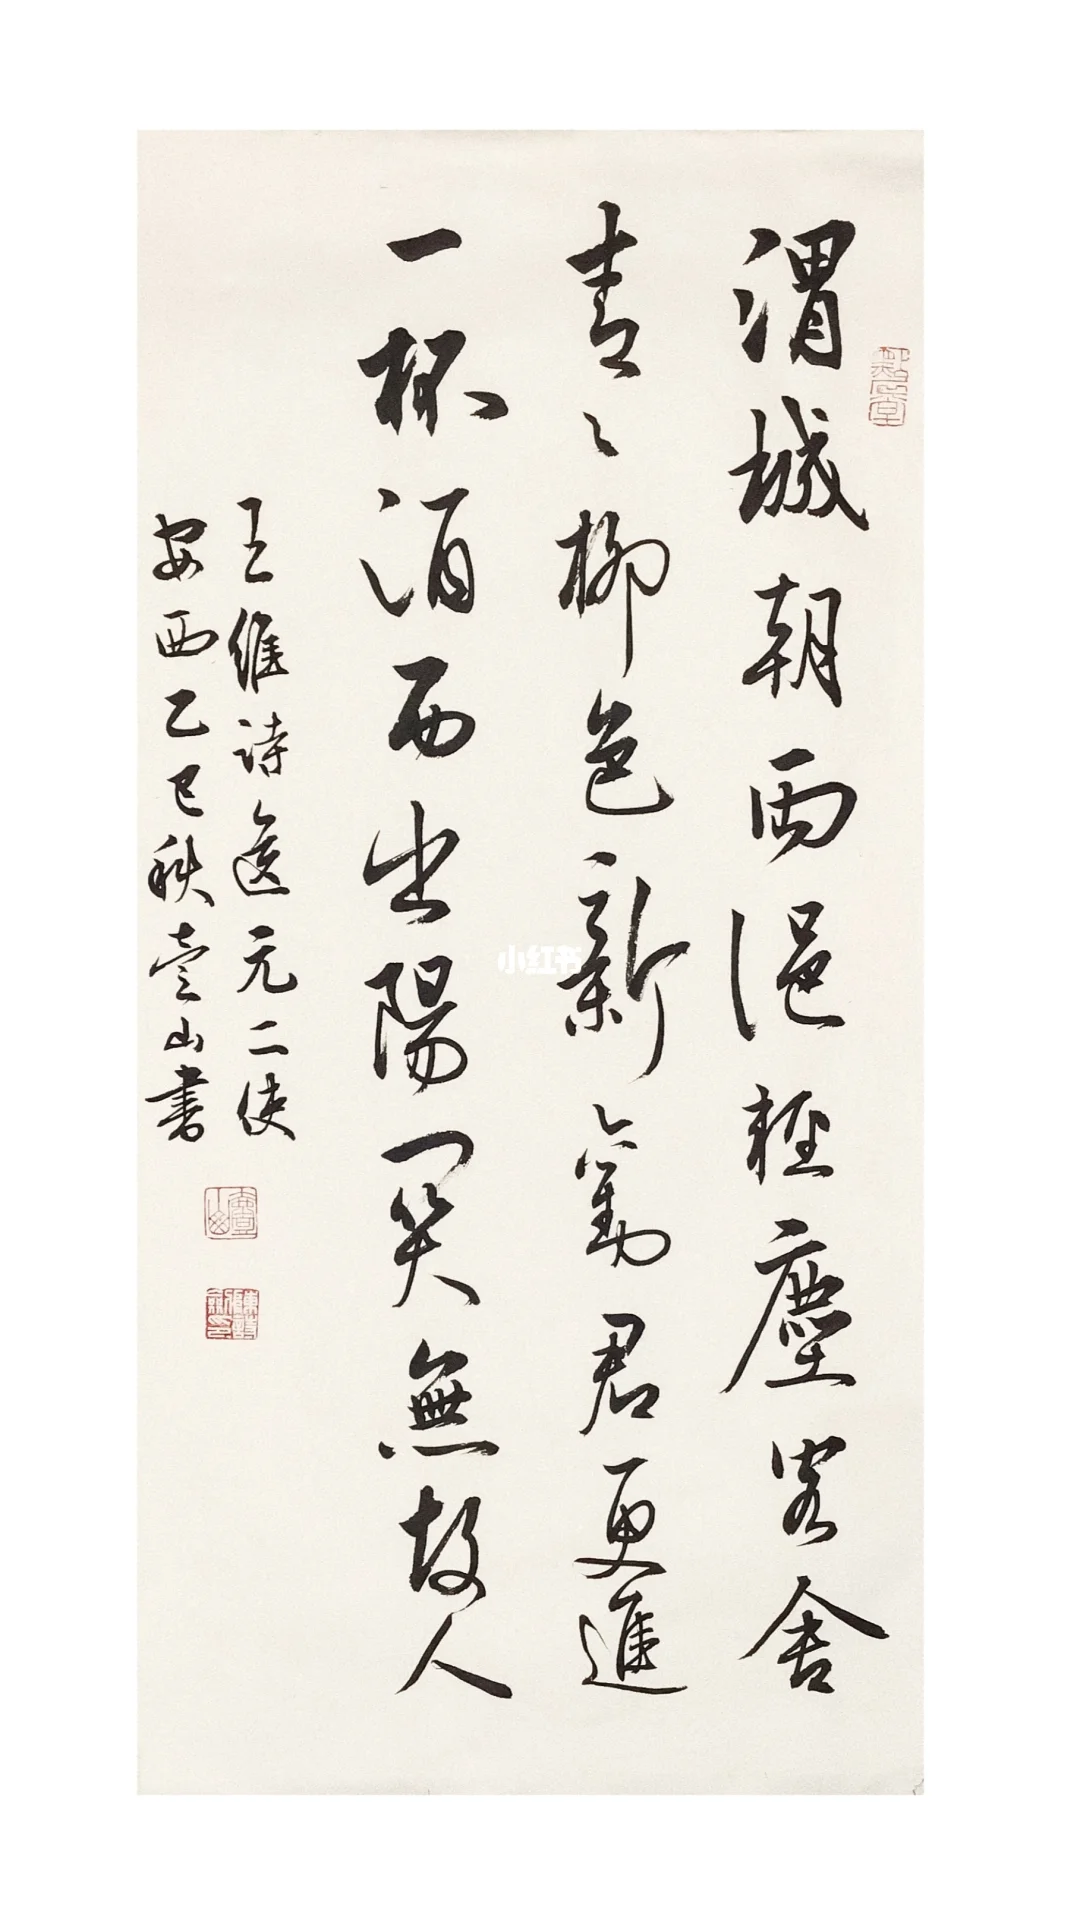 渭城朝雨浥輕塵客舍
青〻柳色新勸君更進
一杯酒西出陽關無故人
王維詩送元二使
安西乙巳秋壹山書
壹山
小红书